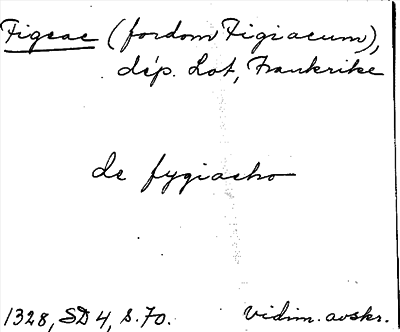 Figeac (fordom Figiacum),
dép. Lot, Frankrike
de fygiacho
1328, SD 4, s. 70. Vidim. avskr.